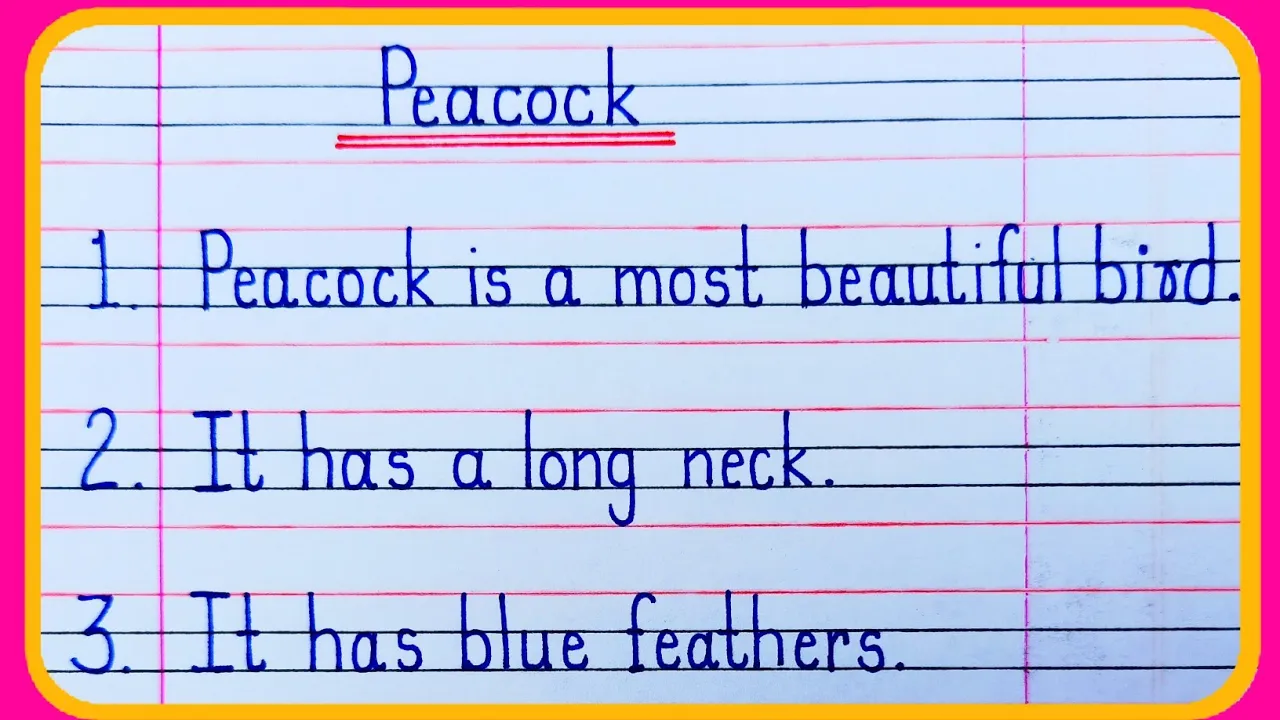 Peacock
1. Peacock is a most beautiful bird.
2. It has a long neck.
3. It has blue feathers.